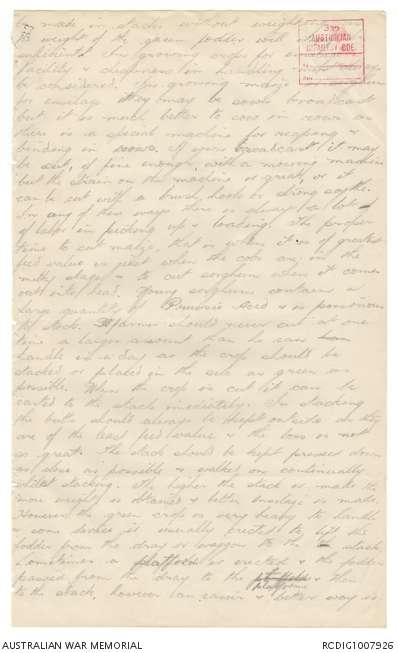 to make in stacks without weighting
weight of the green fodder will
ensilage. In growing crops for ensilage
facility & cheapness in handling must always
be considered. In growing maize & sorghum
for ensilage they may be sown broadcast
but it is much better to sow in rows as
there is a special machine for reaping &
binding in rows. If sown broadcast it may
be cut, if fine enough, with a mowing machine
but the strain on the machine is great, or it
can be cut with a brush hook or strong scythe.
In any of these ways there is always a lot
of labor in picking up & loading. The proper
time to cut maize, that is when it is of greatest
feed value is just when the cobs are in the
milky stage & to cut sorghum when it comes
out into head. Young sorghum contains a
large quantity of Prussic Acid & is poisonous
to stock. Farmer should never cut at one
time a larger amount than he can
handle in a day as the crop should be
stacked or placed in the silo as green as
possible. When the crop is cut it can be
carted to the stack immediately. In stacking
the butts should always be kept outside as they
are of the least feed value & the loss is not
so great. The stack should be kept pressed down
as close as possible & walked on continually
whilst stacking. The higher the stack is made the
more weight is obtained & better ensilage is made.
However the green crop is very heavy to handle
& some device is usually erected to lift the
fodder from the dray or waggon to the stack.
Sometimes a platform is erected & the fodder
passed from the dray to the platform & then
to the stack, however an easier & better way is
332
AUSTRALIAN
INFANTRY BDE
AUSTRALIAN WAR MEMORIAL
RCDIG1007926